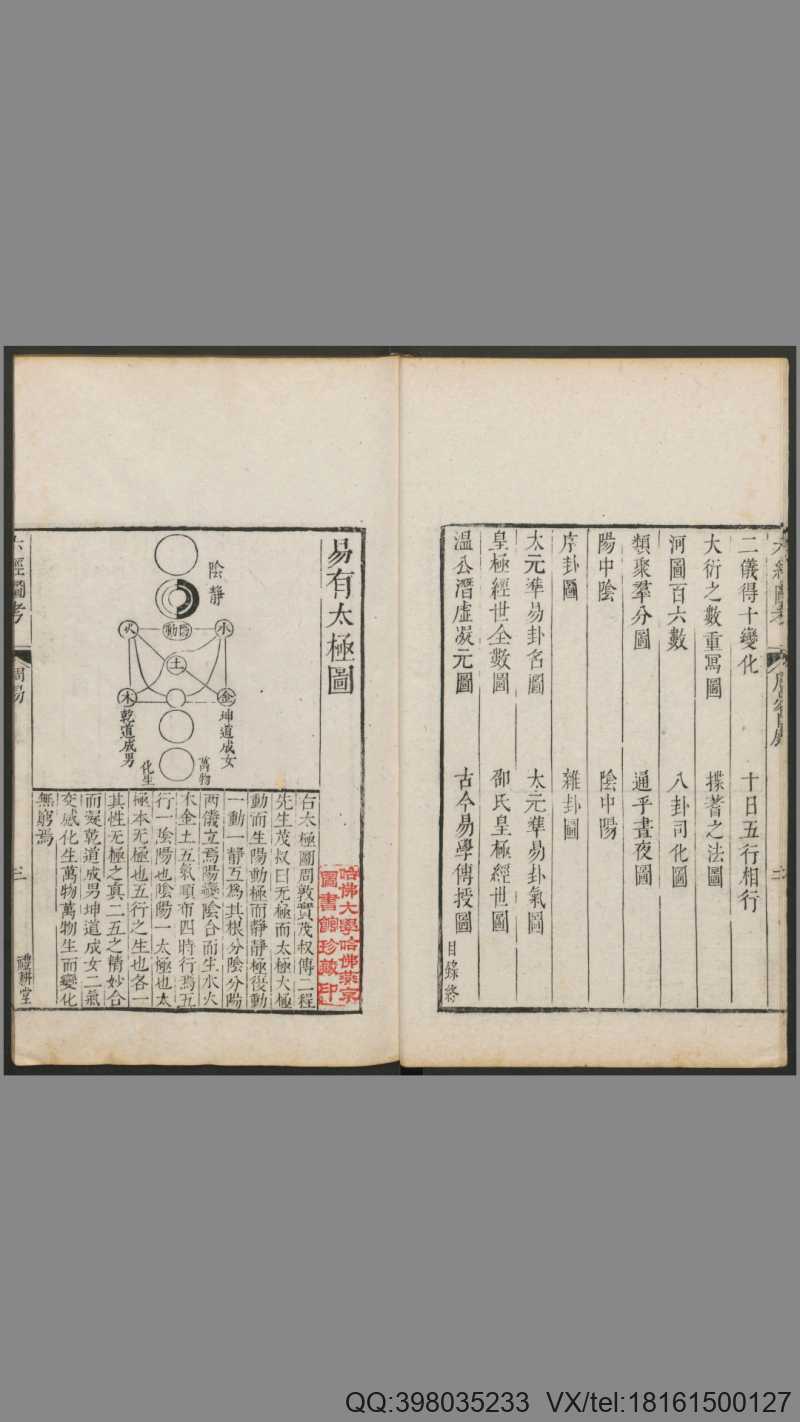 二儀得十變化
十日五行相行
大衍之數重寫圖
揲蓍之法圖
河圖百六數
八卦司化圖
類聚羣分圖
通乎晝夜圖
陽中陰
陰中陽
序卦圖
雜卦圖
太元準易卦名圖
太元準易卦氣圖
皇極經世全數圖
邵氏皇極經世圖
溫公潛虛擬元圖
古今易學傳授圖
目錄終
易有太極圖
哈佛大學哈佛燕京
圖書館珍藏印
陰靜
陽動
火
水
土
木
金
乾道成男
坤道成女
化生
萬物
右太極圖周敦實茂叔傳二程
先生茂叔曰无極而太極太極
動而生陽動極而靜靜極復動
一動一靜互爲其根分陰分陽
兩儀立焉陽變陰合而生水火
木金土五氣順布四時行焉五
行一陰陽也陰陽一太極也太
極本无極也五行之生也各一
其性无極之真二五之精妙合
而凝乾道成男坤道成女二氣
交感化生萬物萬物生而變化
無窮焉
六經圖考
周易
三
禮耕堂
QQ:398035233 VX/tel:18161500127